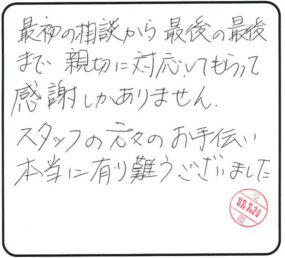 最初の相談から最後の最後
まで親切に対応してもらって
感謝しかありません.
スタッフの元々のお手伝い
本当に有り難うございました